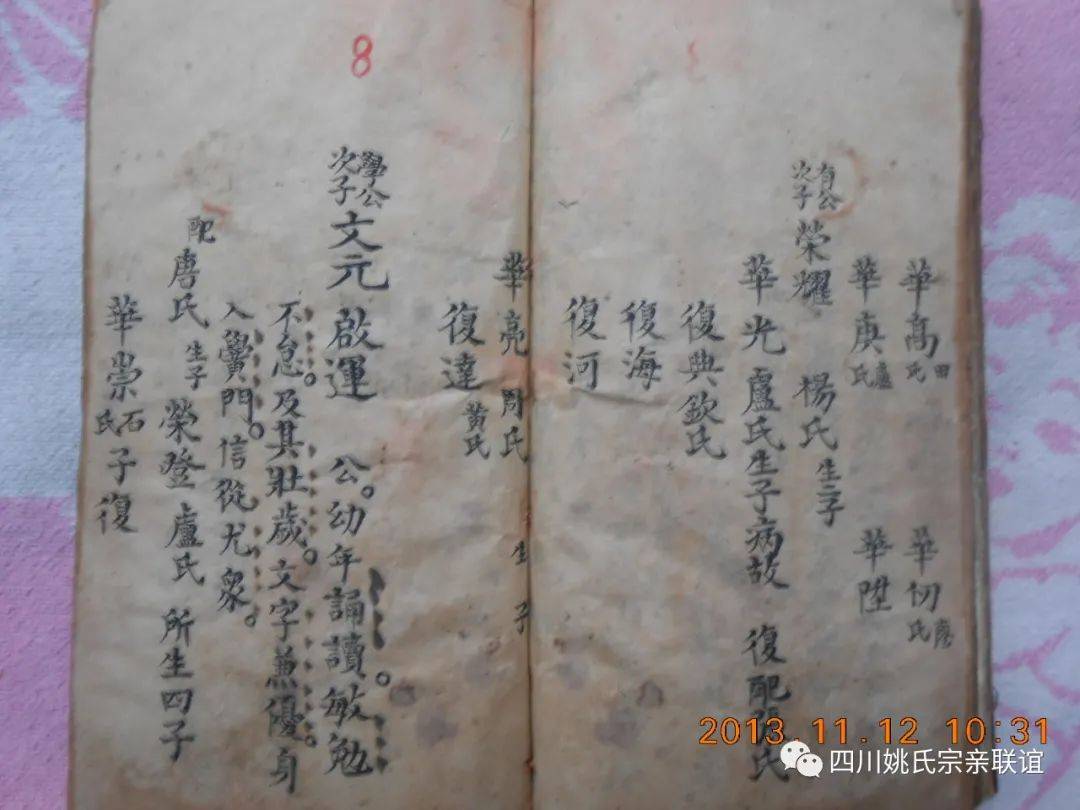 華高田氏 華仞唐氏
華庚盧氏 華陞
有公次子 榮耀 楊氏生子
華光 盧氏生子病故 復配氏
復興欽氏
復海
復河
華亮 周氏 生子
復達黃氏
8
學公次子 文元 啟運 公。幼年誦讀。敏勉
不怠。及其壯歲。文字兼優。身
入黌門。信從尤衆。
配唐氏 生子 榮登 盧氏 所生四子
華崇石氏 子復
2013.11.12 10:31
四川姚氏宗亲联谊